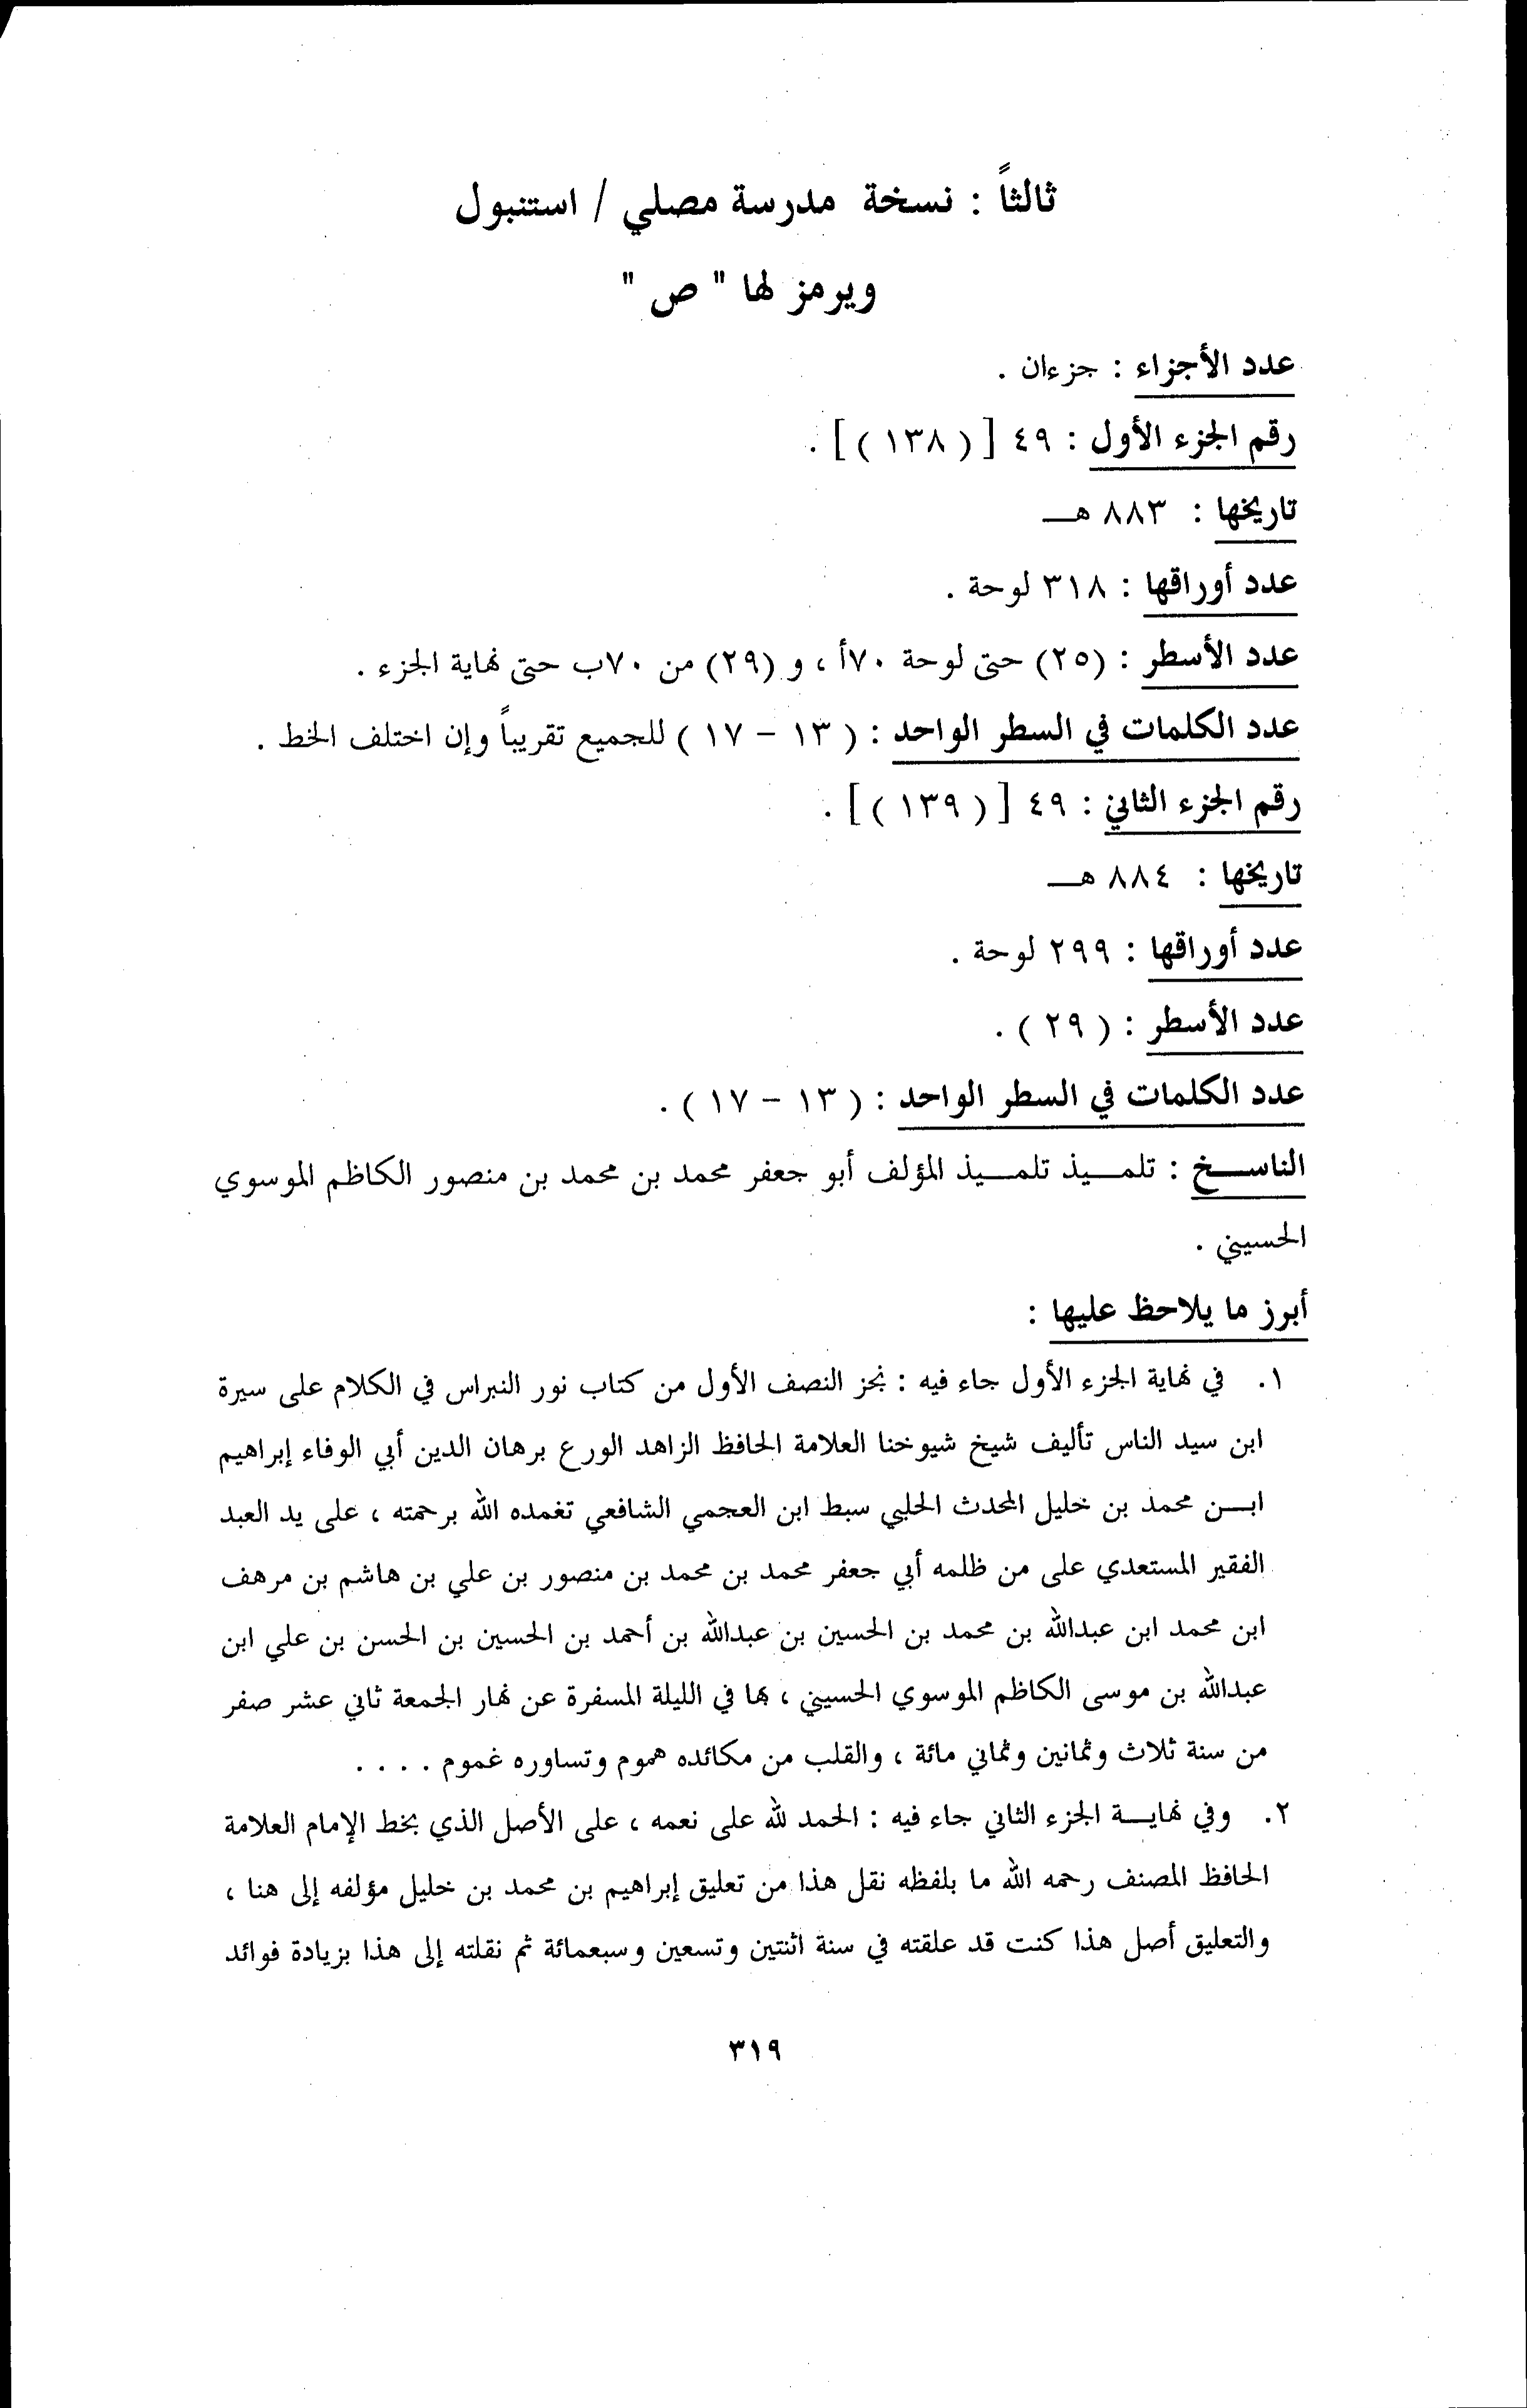 ثالثاً : نسخة مدرسة مصلي / استنبول
ويرمز لها " ص "
عدد الأجزاء : جزءان .
رقم الجزء الأول : ٤٩ [ ( ١٣٨ ) ] .
تاريخها : ٨٨٣ هـ
عدد أوراقها : ٣١٨ لوحة .
عدد الأسطر : (٢٥) حتى لوحة ٧٠أ ، و (٢٩) من ٧٠ب حتى نهاية الجزء .
عدد الكلمات في السطر الواحد : ( ١٣ - ١٧ ) للجميع تقريباً وإن اختلف الخط .
رقم الجزء الثاني : ٤٩ [ ( ١٣٩ ) ] .
تاريخها : ٨٨٤ هـ
عدد أوراقها : ٢٩٩ لوحة .
عدد الأسطر : ( ٢٩ ) .
عدد الكلمات في السطر الواحد : ( ١٣ - ١٧ ) .
الناسخ : تلميذ تلميذ المؤلف أبو جعفر محمد بن محمد بن منصور الكاظم الموسوي
الحسيني .
أبرز ما يلاحظ عليها :
١. في نهاية الجزء الأول جاء فيه : نجز النصف الأول من كتاب نور النبراس في الكلام على سيرة
ابن سيد الناس تأليف شيخ شيوخنا العلامة الحافظ الزاهد الورع برهان الدين أبي الوفاء إبراهيم
ابن محمد بن خليل المحدث الحلبي سبط ابن العجمي الشافعي تغمده الله برحمته ، على يد العبد
الفقير المستعدي على من ظلمه أبي جعفر محمد بن محمد بن منصور بن علي بن هاشم بن مرهف
ابن محمد ابن عبدالله بن محمد بن الحسين بن عبدالله بن أحمد بن الحسين بن الحسن بن علي ابن
عبدالله بن موسى الكاظم الموسوي الحسيني ، بها في الليلة المسفرة عن نهار الجمعة ثاني عشر صفر
من سنة ثلاث وثمانين وثماني مائة ، والقلب من مكائده هموم وتساوره غموم . . . .
٢. وفي نهاية الجزء الثاني جاء فيه : الحمد لله على نعمه ، على الأصل الذي بخط الإمام العلامة
الحافظ المصنف رحمه الله ما بلفظه نقل هذا من تعليق إبراهيم بن محمد بن خليل مؤلفه إلى هنا ،
والتعليق أصل هذا كنت قد علقته في سنة اثنتين وتسعين وسبعمائة ثم نقلته إلى هذا بزيادة فوائد
٣١٩